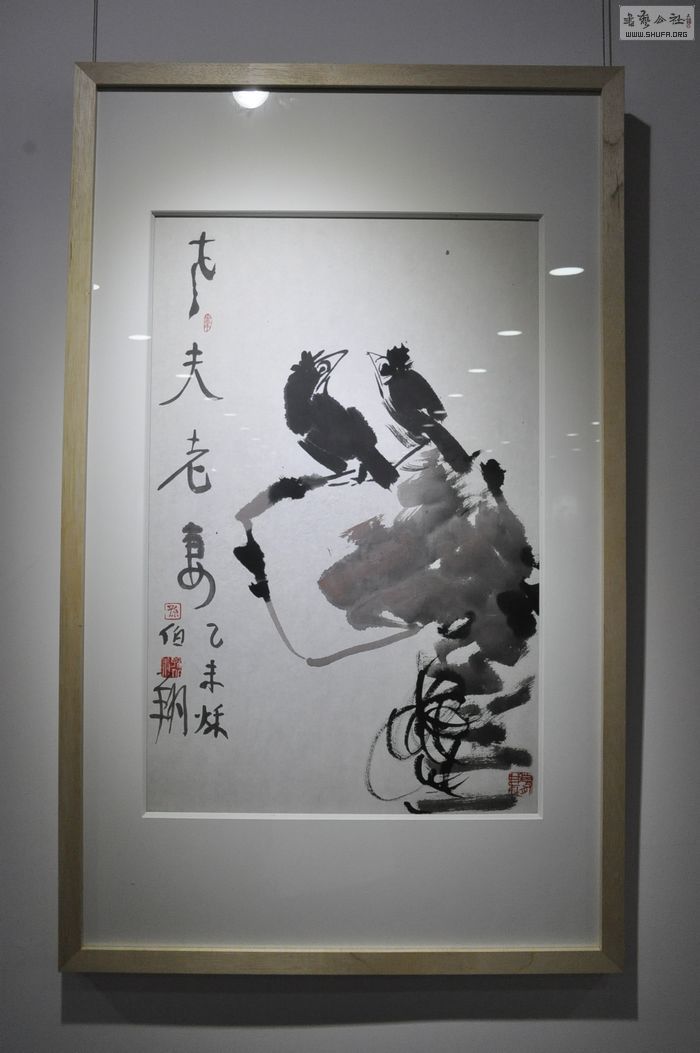 書藝公社
WWW.SHUFA.ORG
老夫老妻
乙未秋
伯翔